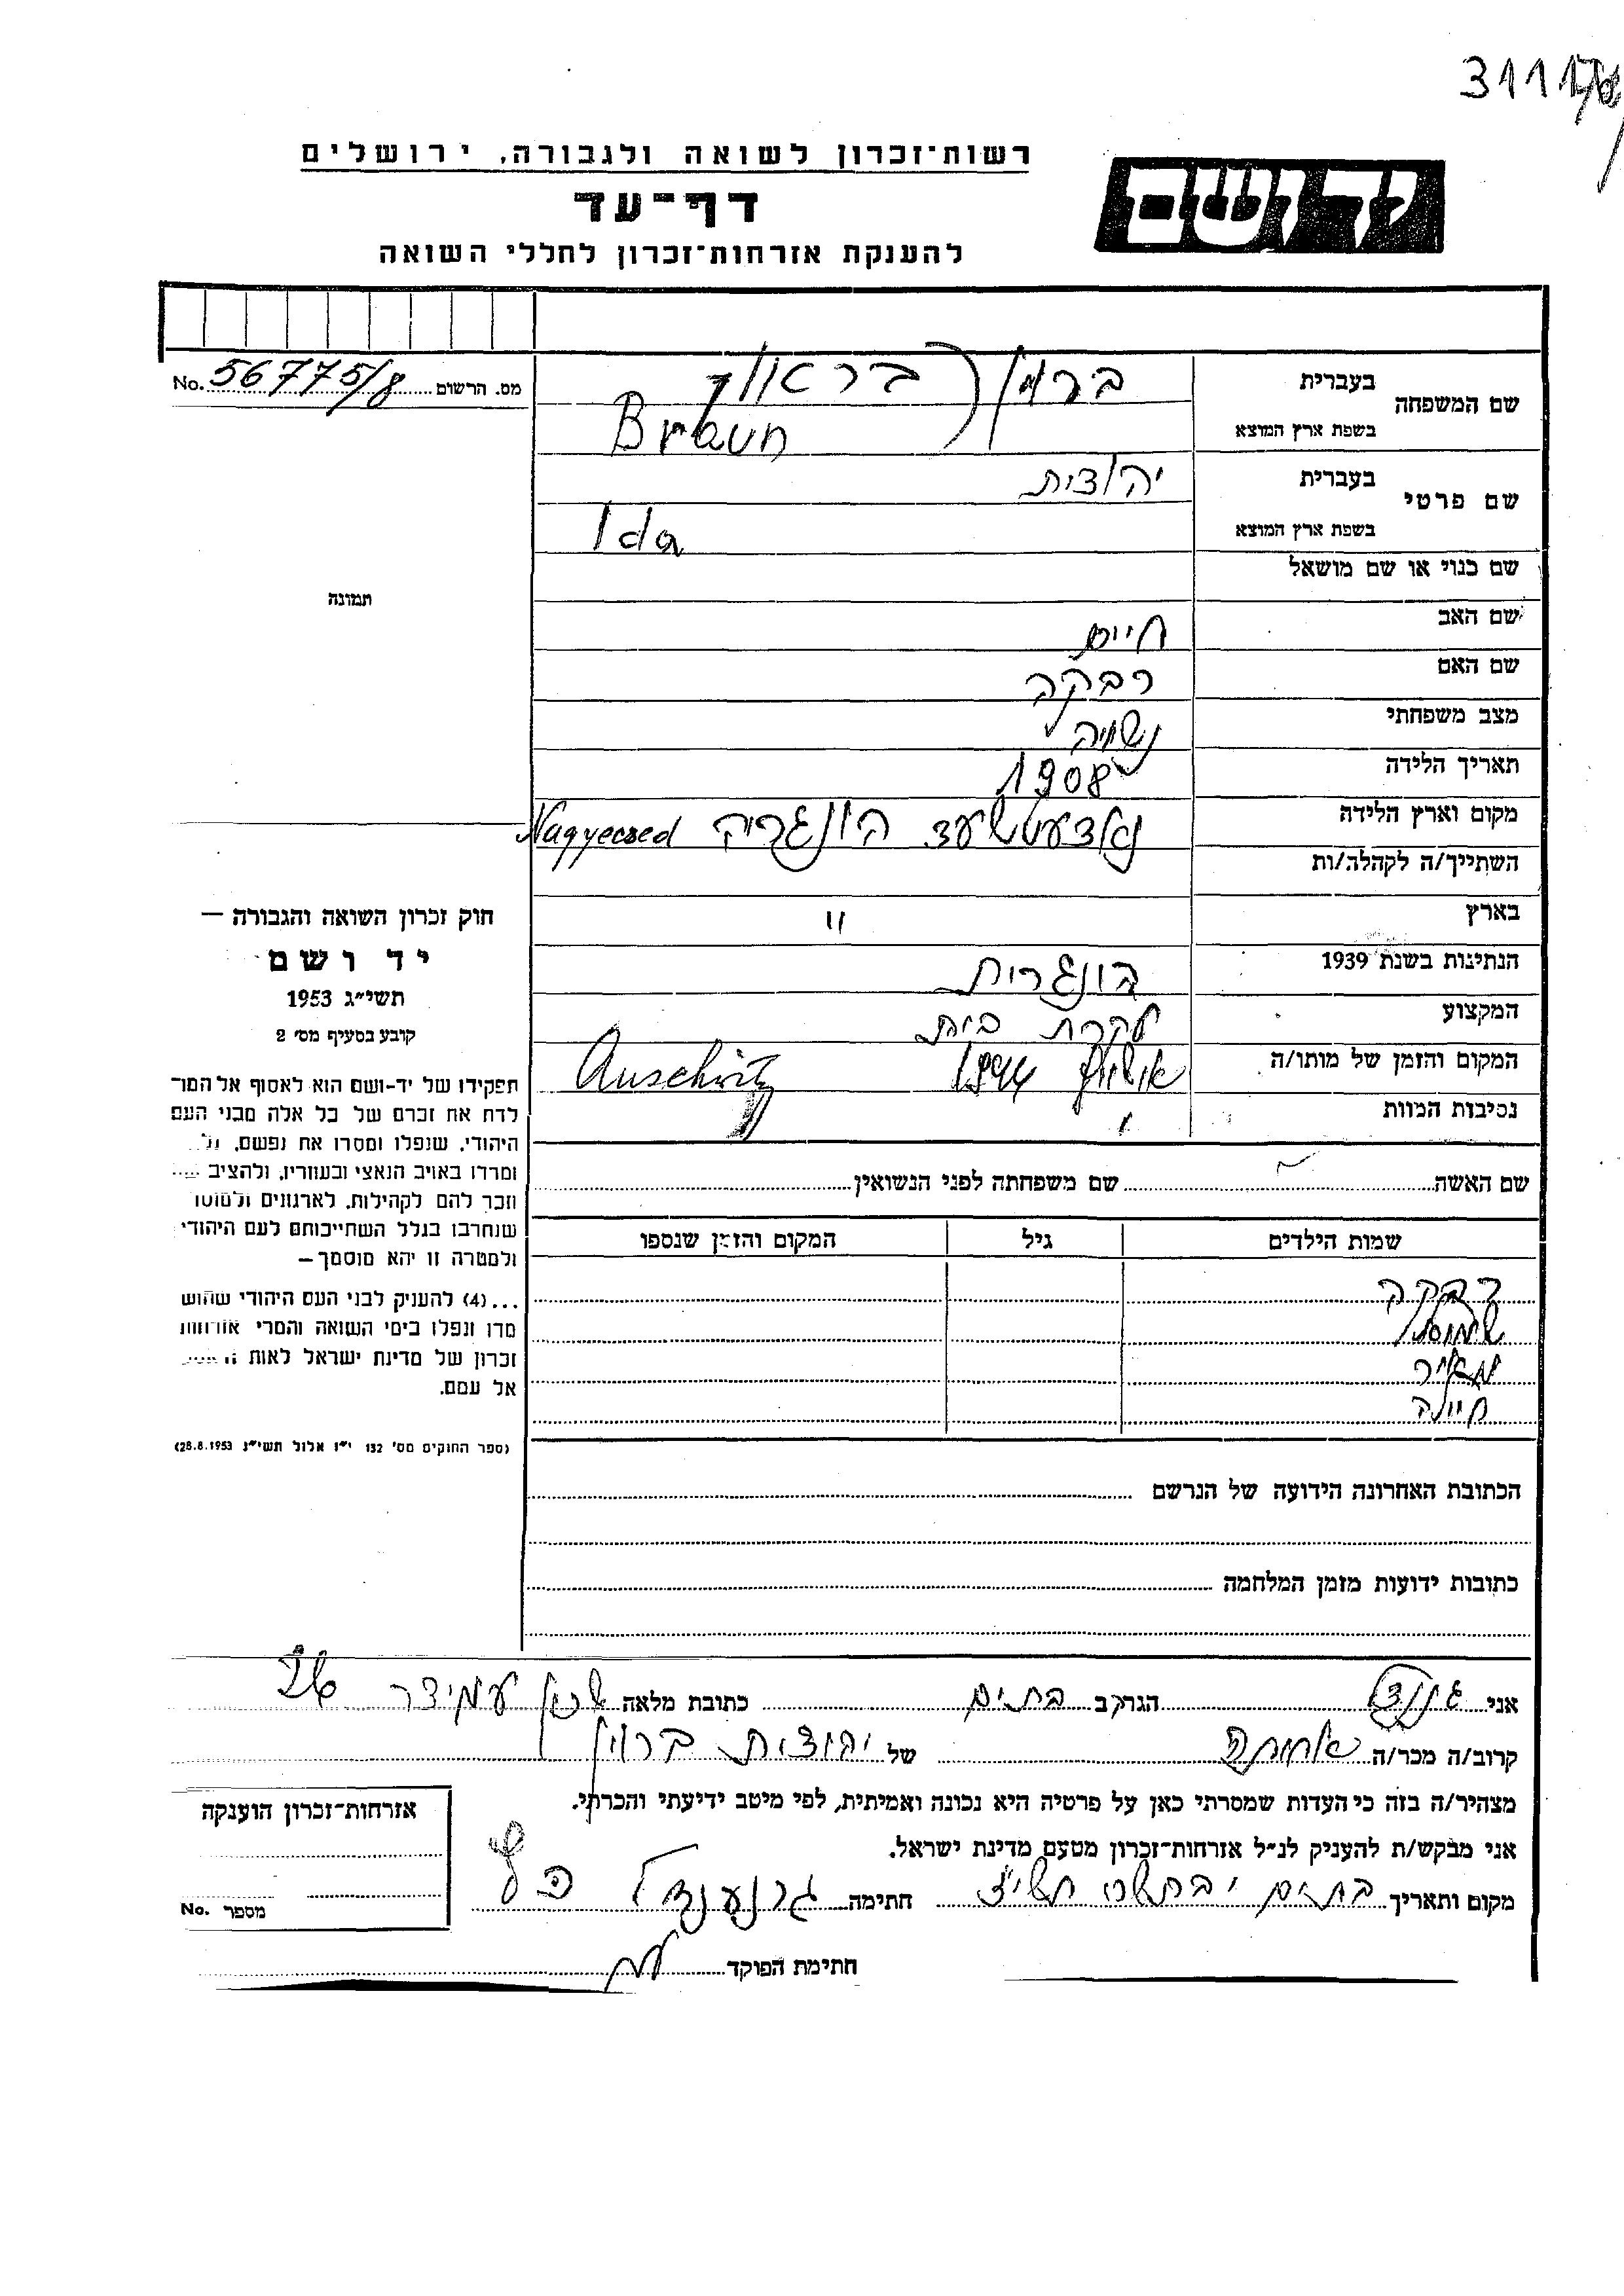 רשות־זכרון לשואה ולגבורה, ירושלים
דף־עד
להענקת אזרחות־זכרון לחללי השואה
יד ושם
No. 56775/8 מס. הרשום
שם המשפחה
בעברית ברוין (בראון)
בשפת ארץ המוצא Braun
שם פרטי
בעברית יהודית
בשפת ארץ המוצא Ida
שם כנוי או שם מושאל
תמונה
שם האב חיים
שם האם רבקה
מצב משפחתי נשויה
תאריך הלידה 1908
מקום וארץ הלידה הונגריה Nagyecsed
השתייך/ה לקהלה/ות
בארץ "
הנתינות בשנת 1939 הונגרית
המקצוע עקרת בית
המקום והזמן של מותו/ה 1944 Auschwitz
נסיבות המוות
שם האשה שם משפחתה לפני הנשואין
שמות הילדים גיל המקום והזמן שנספו
רבקה
שמואל
מאיר
חיולה
הכתובת האחרונה הידועה של הנרשם
כתובות ידועות מזמן המלחמה
חוק זכרון השואה והגבורה —
יד ושם
תשי״ג 1953
קובע בסעיף מס׳ 2
תפקידו של יד-ושם הוא לאסוף אל המו־
לדת את זכרם של כל אלה מבני העם
היהודי, שנפלו ומסרו את נפשם,
ומרדו באויב הנאצי ובעוזריו, ולהציב
וזכר להם לקהילות, לארגונים ולמוסדות
שנחרבו בגלל השתייכותם לעם היהודי
ולמטרה זו יהא מוסמך —
...(4) להעניק לבני העם היהודי שהוש־
מדו ונפלו בימי השואה והמרי אזרחות
זכרון של מדינת ישראל לאות
אל עמם.
(ספר החוקים מס׳ 132 י״ז אלול תשי״ג 28.8.1953)
אני הגר/ה ב בת ים כתובת מלאה שכון עמידר
קרוב/ה מכר/ה אחותה של יהודית ברוין
מצהיר/ה בזה כי העדות שמסרתי כאן על פרטיה היא נכונה ואמיתית, לפי מיטב ידיעתי והכרתי.
אני מבקש/ת להעניק לנ״ל אזרחות־זכרון מטעם מדינת ישראל.
מקום ותאריך בת ים חתימה
חתימת הפוקד
אזרחות־זכרון הוענקה
מספר No.